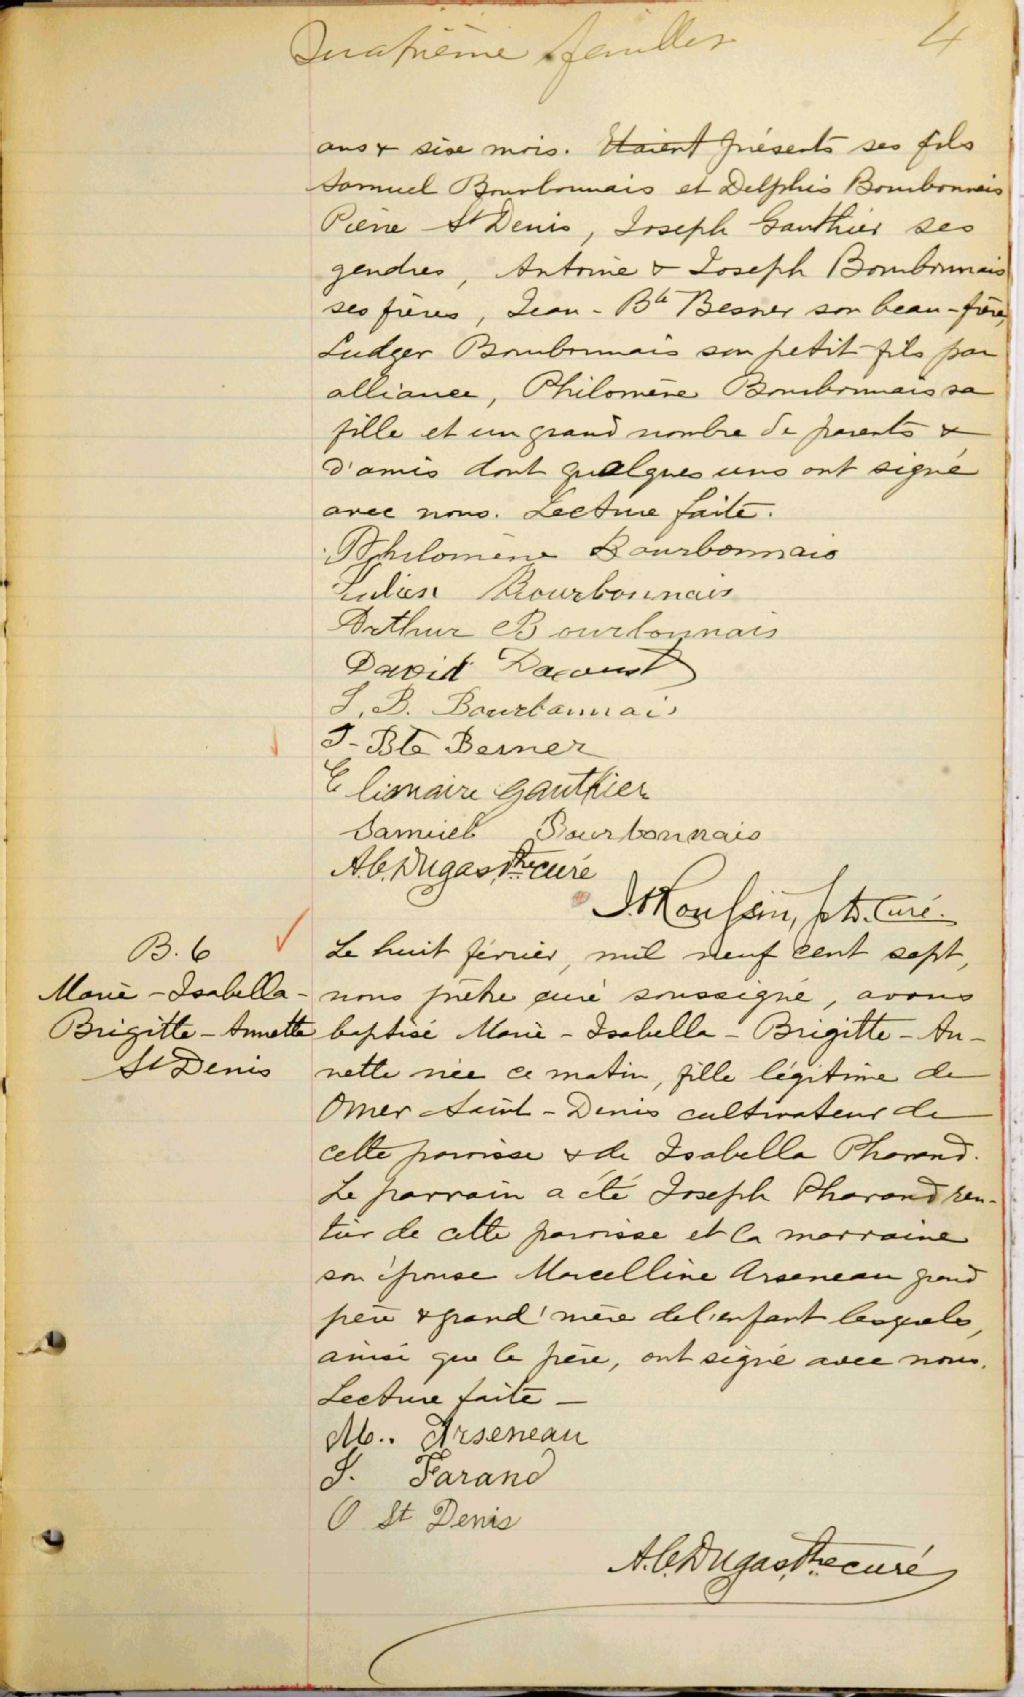 Quatrième feuillet 4
ans & six mois. Etaient présents ses fils
Samuel Bourbonnais et Delphis Bourbonnais
Pierre St Denis, Joseph Gauthier ses
gendres, Antoine & Joseph Bourbonnais
ses frères, Jean-Bte Besner son beau-frère,
Ludger Bourbonnais son petit-fils par
alliance, Philomène Bourbonnais sa
fille et un grand nombre de parents &
d'amis dont quelques uns ont signé
avec nous. Lecture faite.
Philomène Bourbonnais
Julien Bourbonnais
Arthur Bourbonnais
David Daoust
J. B. Bourbannais
J-Bte Besner
Elismaire Gauthier
Samuel Bourbonnais
A.C. Dugas, Ptre curé
ptr. Curé.
B. 6
Marie-Isabella-
Brigitte-Annette
St Denis
Le huit février, mil neuf cent sept,
nous prêtre curé soussigné, avons
baptisé Marie-Isabella-Brigitte-An-
nette née ce matin, fille légitime de
Omer Saint-Denis cultivateur de
cette paroisse & de Isabella Pharand.
Le parrain a été Joseph Pharand ren-
tier de cette paroisse et la marraine
son épouse Marcelline Arseneau grand
père & grand'mère de l'enfant lesquels,
ainsi que le père, ont signé avec nous.
Lecture faite —
M.. Arseneau
J. Farand
O St Denis
A.C. Dugas, Ptre curé